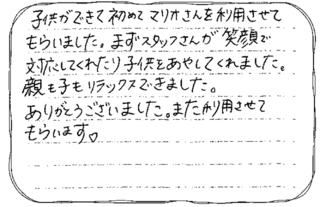 子供ができて初めてマリオさんを利用させて
もらいました。まずスタッフさんが笑顔で
対応してくれたり子供をあやしてくれました。
親も子もリラックスできました。
ありがとうございました。また利用させて
もらいます。